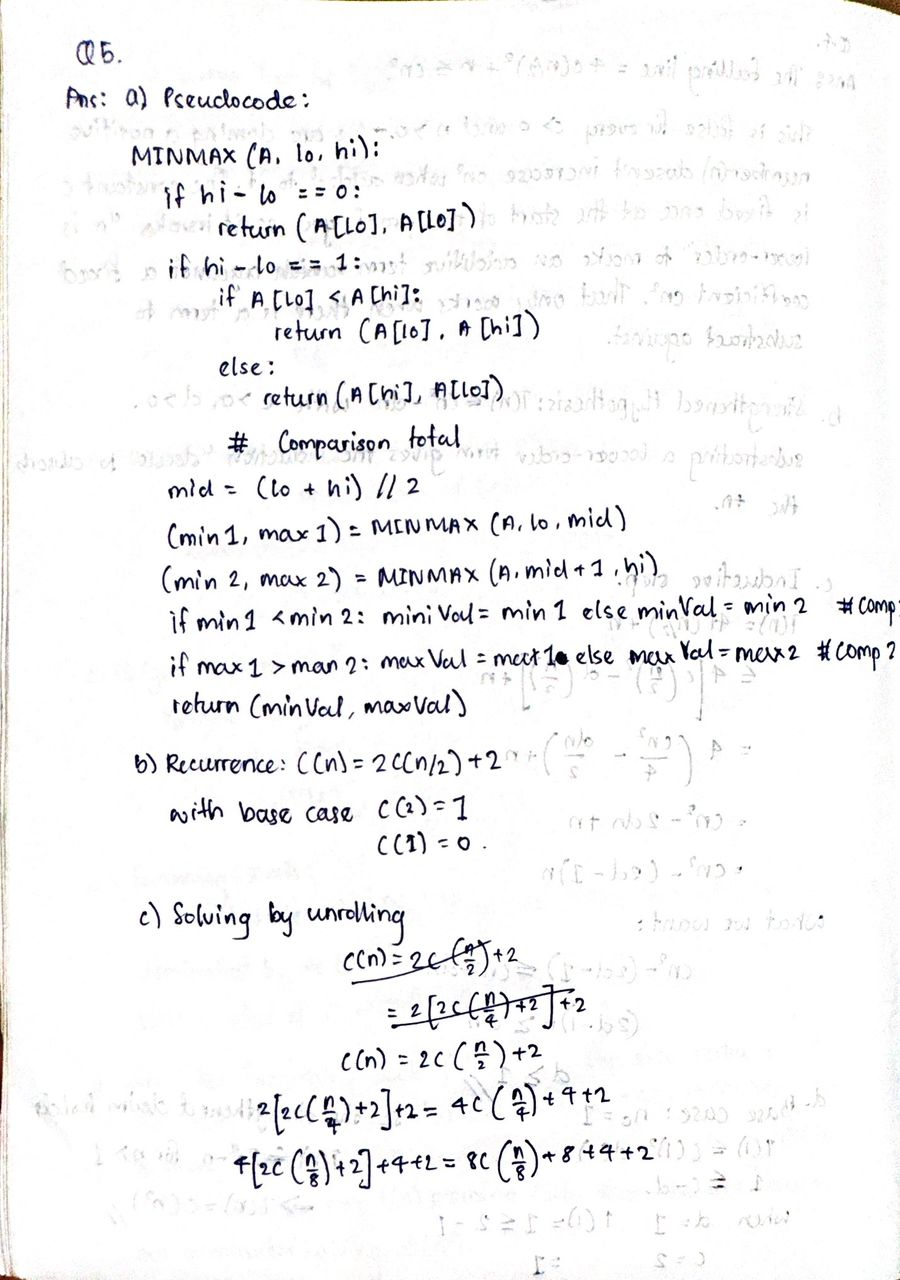 Q5.
Ans: a) Pseudocode:
MINMAX (A, lo, hi):
if hi - lo == 0:
return (A[Lo], A[Lo])
if hi - lo == 1:
if A[Lo] < A[hi]:
return (A[lo], A[hi])
else:
return (A[hi], A[Lo])
# Comparison total
mid = (lo + hi) // 2
(min1, max1) = MINMAX (A, lo, mid)
(min 2, max 2) = MINMAX (A, mid+1, hi)
if min1 < min 2: mini Val = min 1 else minVal = min 2 # Comp
if max1 > man 2: max Val = max1 else max Val = max2 # Comp 2
return (minVal, maxVal)
b) Recurrence: C(n) = 2C(n/2) + 2
with base case C(2) = 1
C(1) = 0.
c) Solving by unrolling
C(n) = 2C(n/2) + 2
= 2[2C(n/4) + 2] + 2
C(n) = 2C(n/2) + 2
2[2C(n/4) + 2] + 2 = 4C(n/4) + 4 + 2
4[2C(n/8) + 2] + 4 + 2 = 8C(n/8) + 8 + 4 + 2